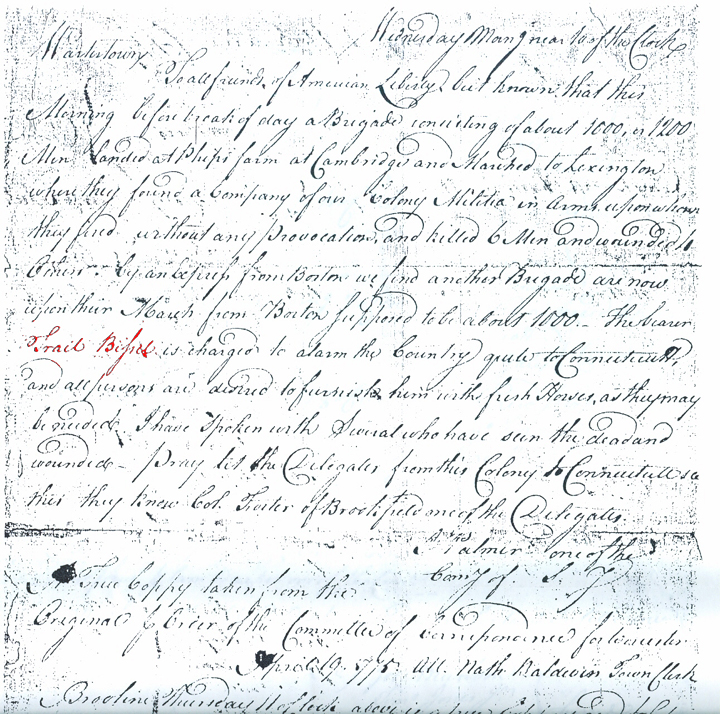 Wenesday Morn g near 10 of the Clock
Wartertown
To all friends of American Liberty, be it known that this
Morning before break of day a Brigade consisting of about 1000, or 1200
Men landed at Phips farm at Cambridge and Marched to Lexington
where they found a Company of our Colony Militia in Arms upon whom
they fired without any Provocation, and killed 6 Men and wounded 4
Others - by an Express from Boston we find another Brigade are now
upon their March from Boston supposed to be about 1000 - The bearer
Trail Bissel is charged to alarm the Country quite to Connecticutt,
and all persons are desired to furnish him with fresh Horses, as they may
be needed. I have spoken with Several who have seen the dead and
wounded - Pray let the Delegates from this Colony to Connecticutt see
this they know Col. Foster of Brookfield one of the Delegates
Palmer one of the
Comy of S. Y
A True Coppy taken from the
Original Order of the Committee of Correspondence for Worcester
April 19. 1775 Att. Nath Baldwin Town Clerk
Brooline Thursday 11 oClock above is a true